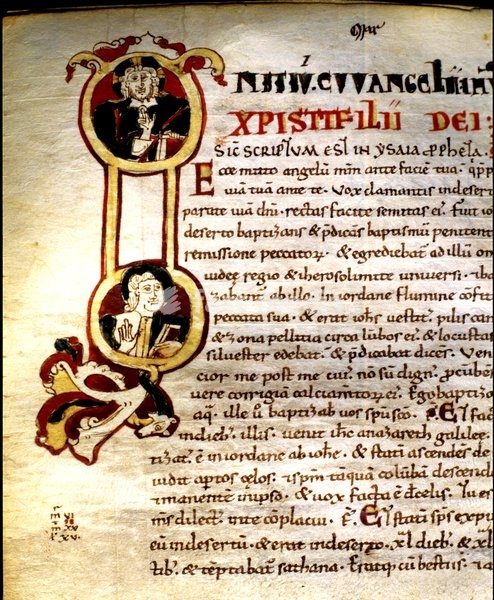 NITIV. EVVANGELII IHV
XPISTI FILII DEI:
SIC SCRIPTVM EST IN YSAIA PPHETA.
Ecce mitto angelu mm ante facie tua. qpp
uia tua ante te. Vox clamantis indesert
parate uia dni. rectas facite semitas ei. Fuit io
deserto baptizans & pdicans baptismu penitent
remissione peccator. & egrediebat ad illu om
iudee regio & iherosolimite uniuersi. & ba
zabant ab illo. In iordane flumine confit
peccata sua. & erat iohs uestit pilis cam
& zona pellitia circa lubos ei. & locustas
siluestre edebat. & pdicabat dices. Ven
cior me post me cui. no su dign procubens
uere corrigia calciamtor ei. Ego baptizo
aq. ille u baptizab uos spu sco. Est fac
indieb. illis. uenit ihc anazareth galilee.
tizat. e in iordane ab iohe. & stati ascendes de
uidit aptos celos. & spm taqua coluba descend
& manente in ipso. & uox facta e de celis. Tu es
ms dilect. in te complacui. Et stati sps expu
eu indesertu. & erat indeserto. xl dieb. & xl
tib. & teptabat sathana. Eratq cu bestiis.